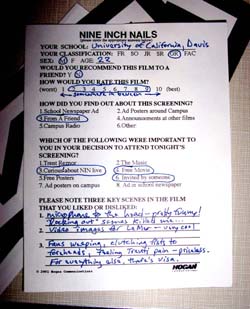 NINE INCH NAILS
(please circle the appropriate answers below)
YOUR SCHOOL: University of California, Davis
YOUR CLASSIFICATION: FR SO JR SR GR FAC
SEX: M F AGE: 22
WOULD YOU RECOMMEND THIS FILM TO A
FRIEND? Y N
HOW WOULD YOU RATE THIS FILM?
(worst) 1 2 3 4 5 6 7 8 9 10 (best)
HOW DID YOU FIND OUT ABOUT THIS SCREENING?
1 School Newspaper Ad 2 Ad Posters around Campus
3 From A Friend 4 Announcements at other films
5 Campus Radio 6 Other:
WHICH OF THE FOLLOWING WERE IMPORTANT TO
YOU IN YOUR DECISION TO ATTEND TONIGHT'S
SCREENING?
1 Trent Reznor 2 The Music
3 Curious about NIN live 4 Free Movie
5 Free Posters 6 Invited by someone
7 Ad posters on campus 8 Ad in school newspaper
PLEASE NOTE THREE KEY SCENES IN THE FILM
THAT YOU LIKED OR DISLIKED:
1. microphone to the head - pretty
"Rocking out" scenes killed me...
2. Video images for La Mer - very cool
3. Fans weeping, clutching fists to
foreheads, feeling Trent's pain - priceless.
For everything else, there's visa.
© 2002 Hogan Communications
HOGAN